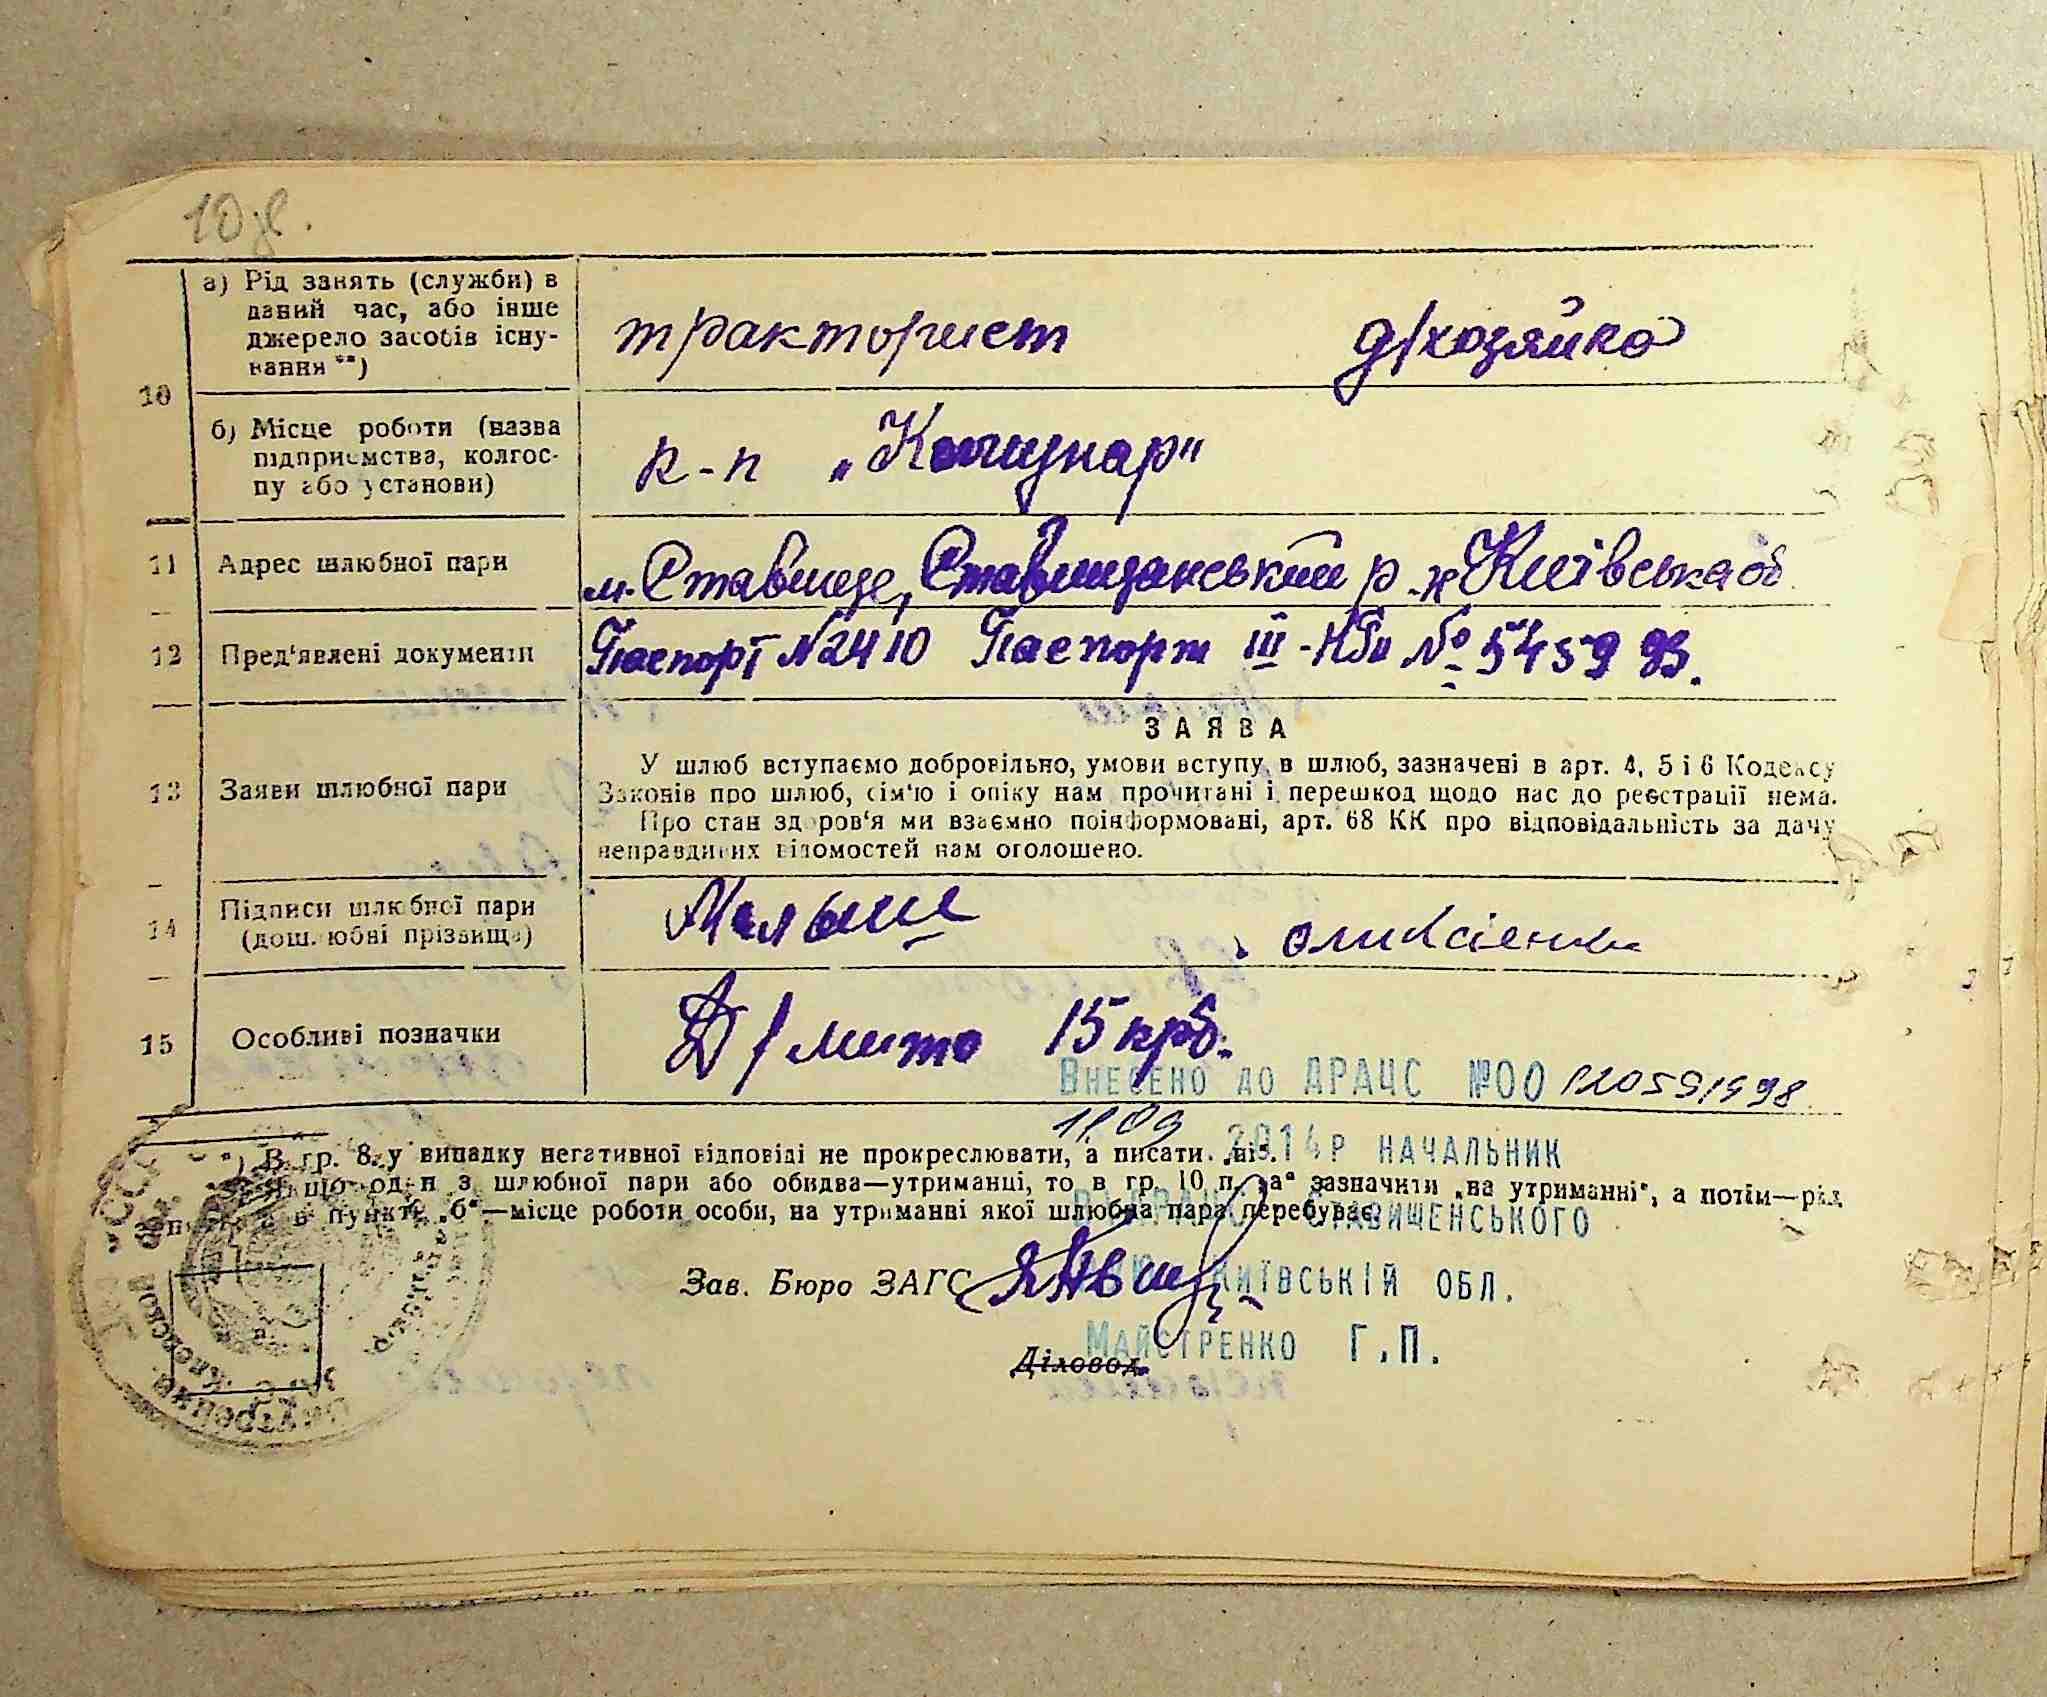 10 зв.
а) Рід занять (служби) в
даний час, або інше
джерело засобів існу-
вання **)
тракторист д/хозяйка
10
б) Місце роботи (назва
підприємства, колгос-
пу або установи)
к-п „Комунар"
11 Адрес шлюбної пари м. Ставище, Ставищанський р-н Київська об
12 Пред'явлені документи Паспорт №2410 Паспорт III-НБи № 545993.
ЗАЯВА
13 Заяви шлюбної пари
У шлюб вступаємо добровільно, умови вступу в шлюб, зазначені в арт. 4, 5 і 6 Кодексу
Законів про шлюб, сім'ю і опіку нам прочитані і перешкод щодо нас до реєстрації нема.
Про стан здоров'я ми взаємно поінформовані, арт. 68 КК про відповідальність за дачу
неправдивих відомостей нам оголошено.
14 Підписи шлюбної пари
(дошлюбні прізвища)
Малыш
15 Особливі позначки Д/мито 15 крб.
Внесено до ДРАЦС №00120591998
11 09 2014р начальник
*) В гр. 8 у випадку негативної відповіді не прокреслювати, а писати „ні".
**) Якщо один з шлюбної пари або обидва—утриманці, то в гр. 10 п. „а" зазначити „на утриманні", а потім—рід
занять, а в пункті „б"—місце роботи особи, на утриманні якої шлюбна пара перебуває.
Ставищенського
Зав. Бюро ЗАГС
Київській обл.
Майстренко Г.П.
Діловод